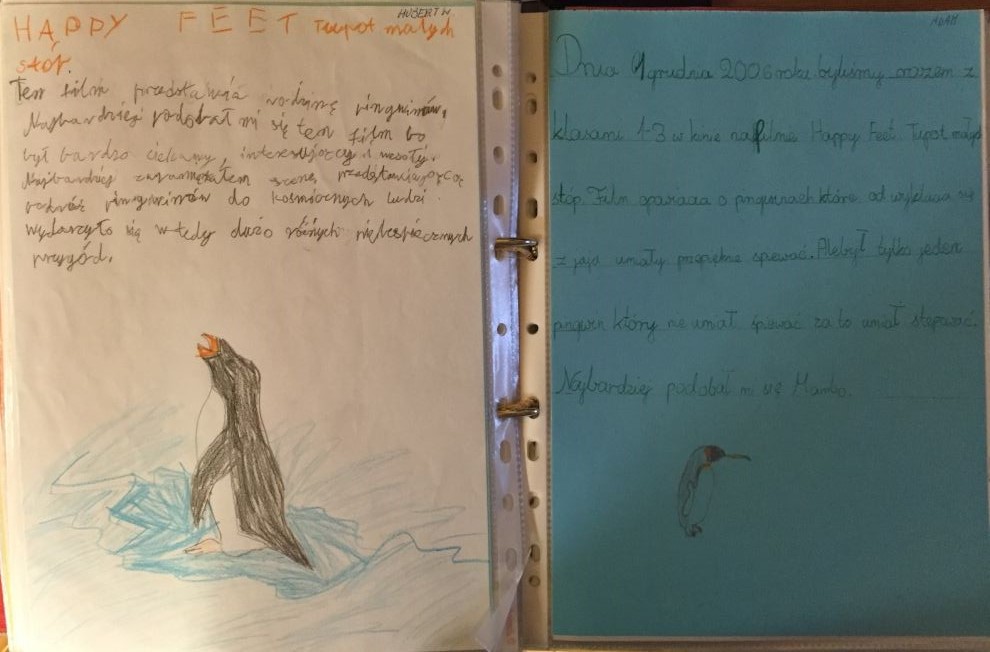 HUBERT W.
HAPPY FEET Tupot małych
stóp.
Ten film przedstawia rodzinę pingwinów.
Najbardziej podobał mi się ten film bo
był bardzo ciekawy, interesujący i wesoły.
Najbardziej zapamiętałem scenę przedstawiającą
podróż pingwinów do kosmicznych ludzi.
wydarzyło się wtedy dużo różnych niebespiecznych
przygód.
ADAM
Dnia grudnia 2006 roku byliśmy razem z
klasami 1-3 w kinie na filmie Happy Feet Tupot małych
stóp. Film opowiada o pingwinach które od wyklucia się
z jaja umiały przepięknie śpiewać. Ale był tylko jeden
pingwin który nie umiał śpiewać za to umiał stepować.
Najbardziej podobał mi się Mambo.